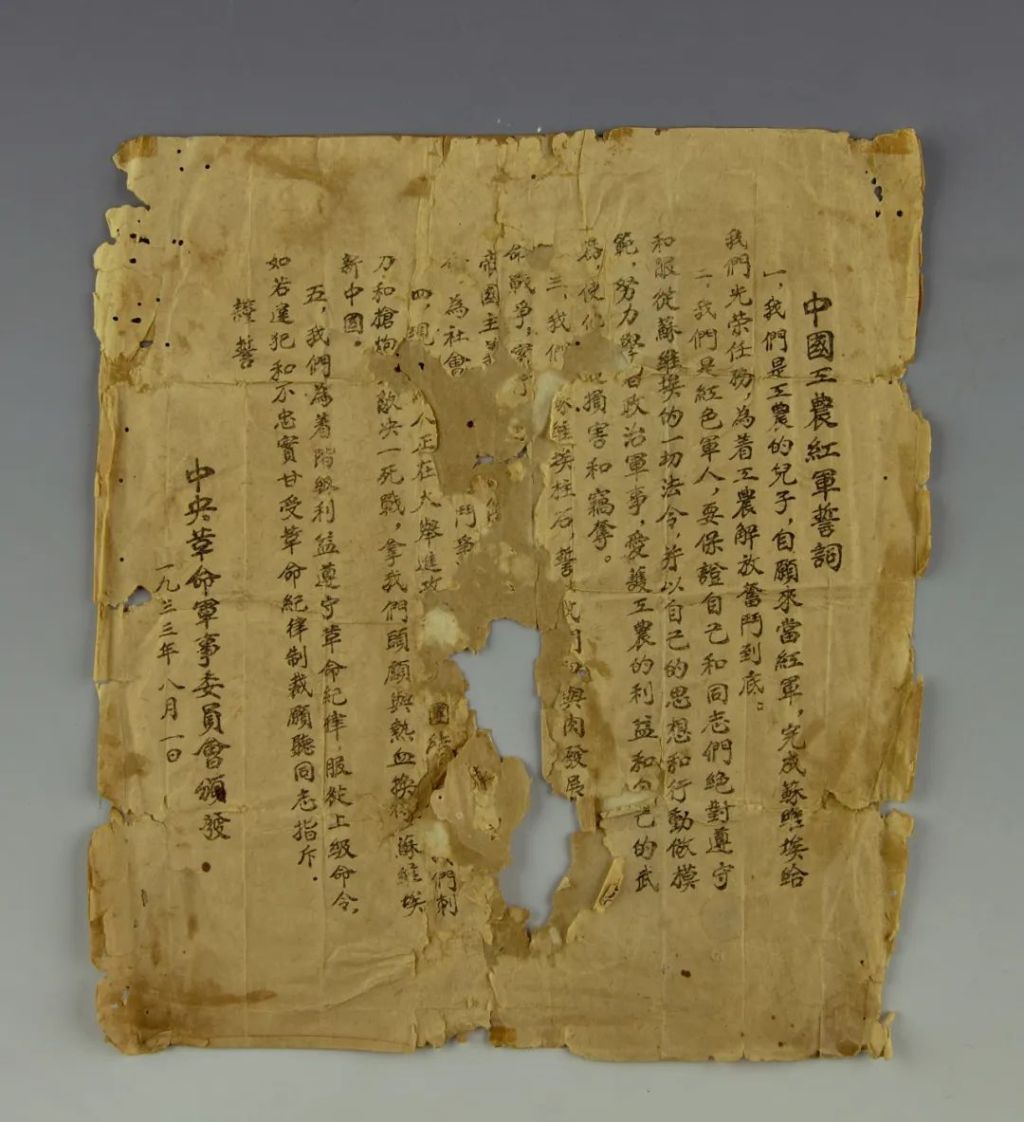 中國工農紅軍誓詞
一，我們是工農的兒子，自願來當紅軍，完成蘇維埃給
我們光荣任務，為着工農解放奮鬥到底。
二，我們是紅色軍人，要保證自己和同志們絕對遵守
和服從蘇維埃的一切法令，并以自己的思想和行動做模
範，努力學習政治軍事，愛護工農的利益和自己的武
器，使他損害和竊奪。
三，我們維埃柱石，誓與肉發展
命戰争，
帝國主義
為社會鬥争
四，現人正在大舉進攻團結我們刺
刀和槍炮敵决一死戰，拿我們頭顱與熱血換得蘇維埃
新中國。
五，我們為着階級利益遵守革命紀律，服從上級命令，
如若違犯和不忠實甘受革命紀律制裁願聽同志指斥。
謹誓
中央革命軍事委員會頒發
一九三三年八月一日